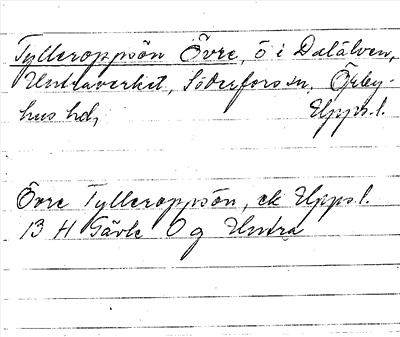 Tylleroppsön Övre, ö i Dalälven,
Untraverket, Söderfors sn, Örby-
hus hd, Upps.l.
Övre Tylleroppsön, ek Upps l.
13 H Gävle O g Untra